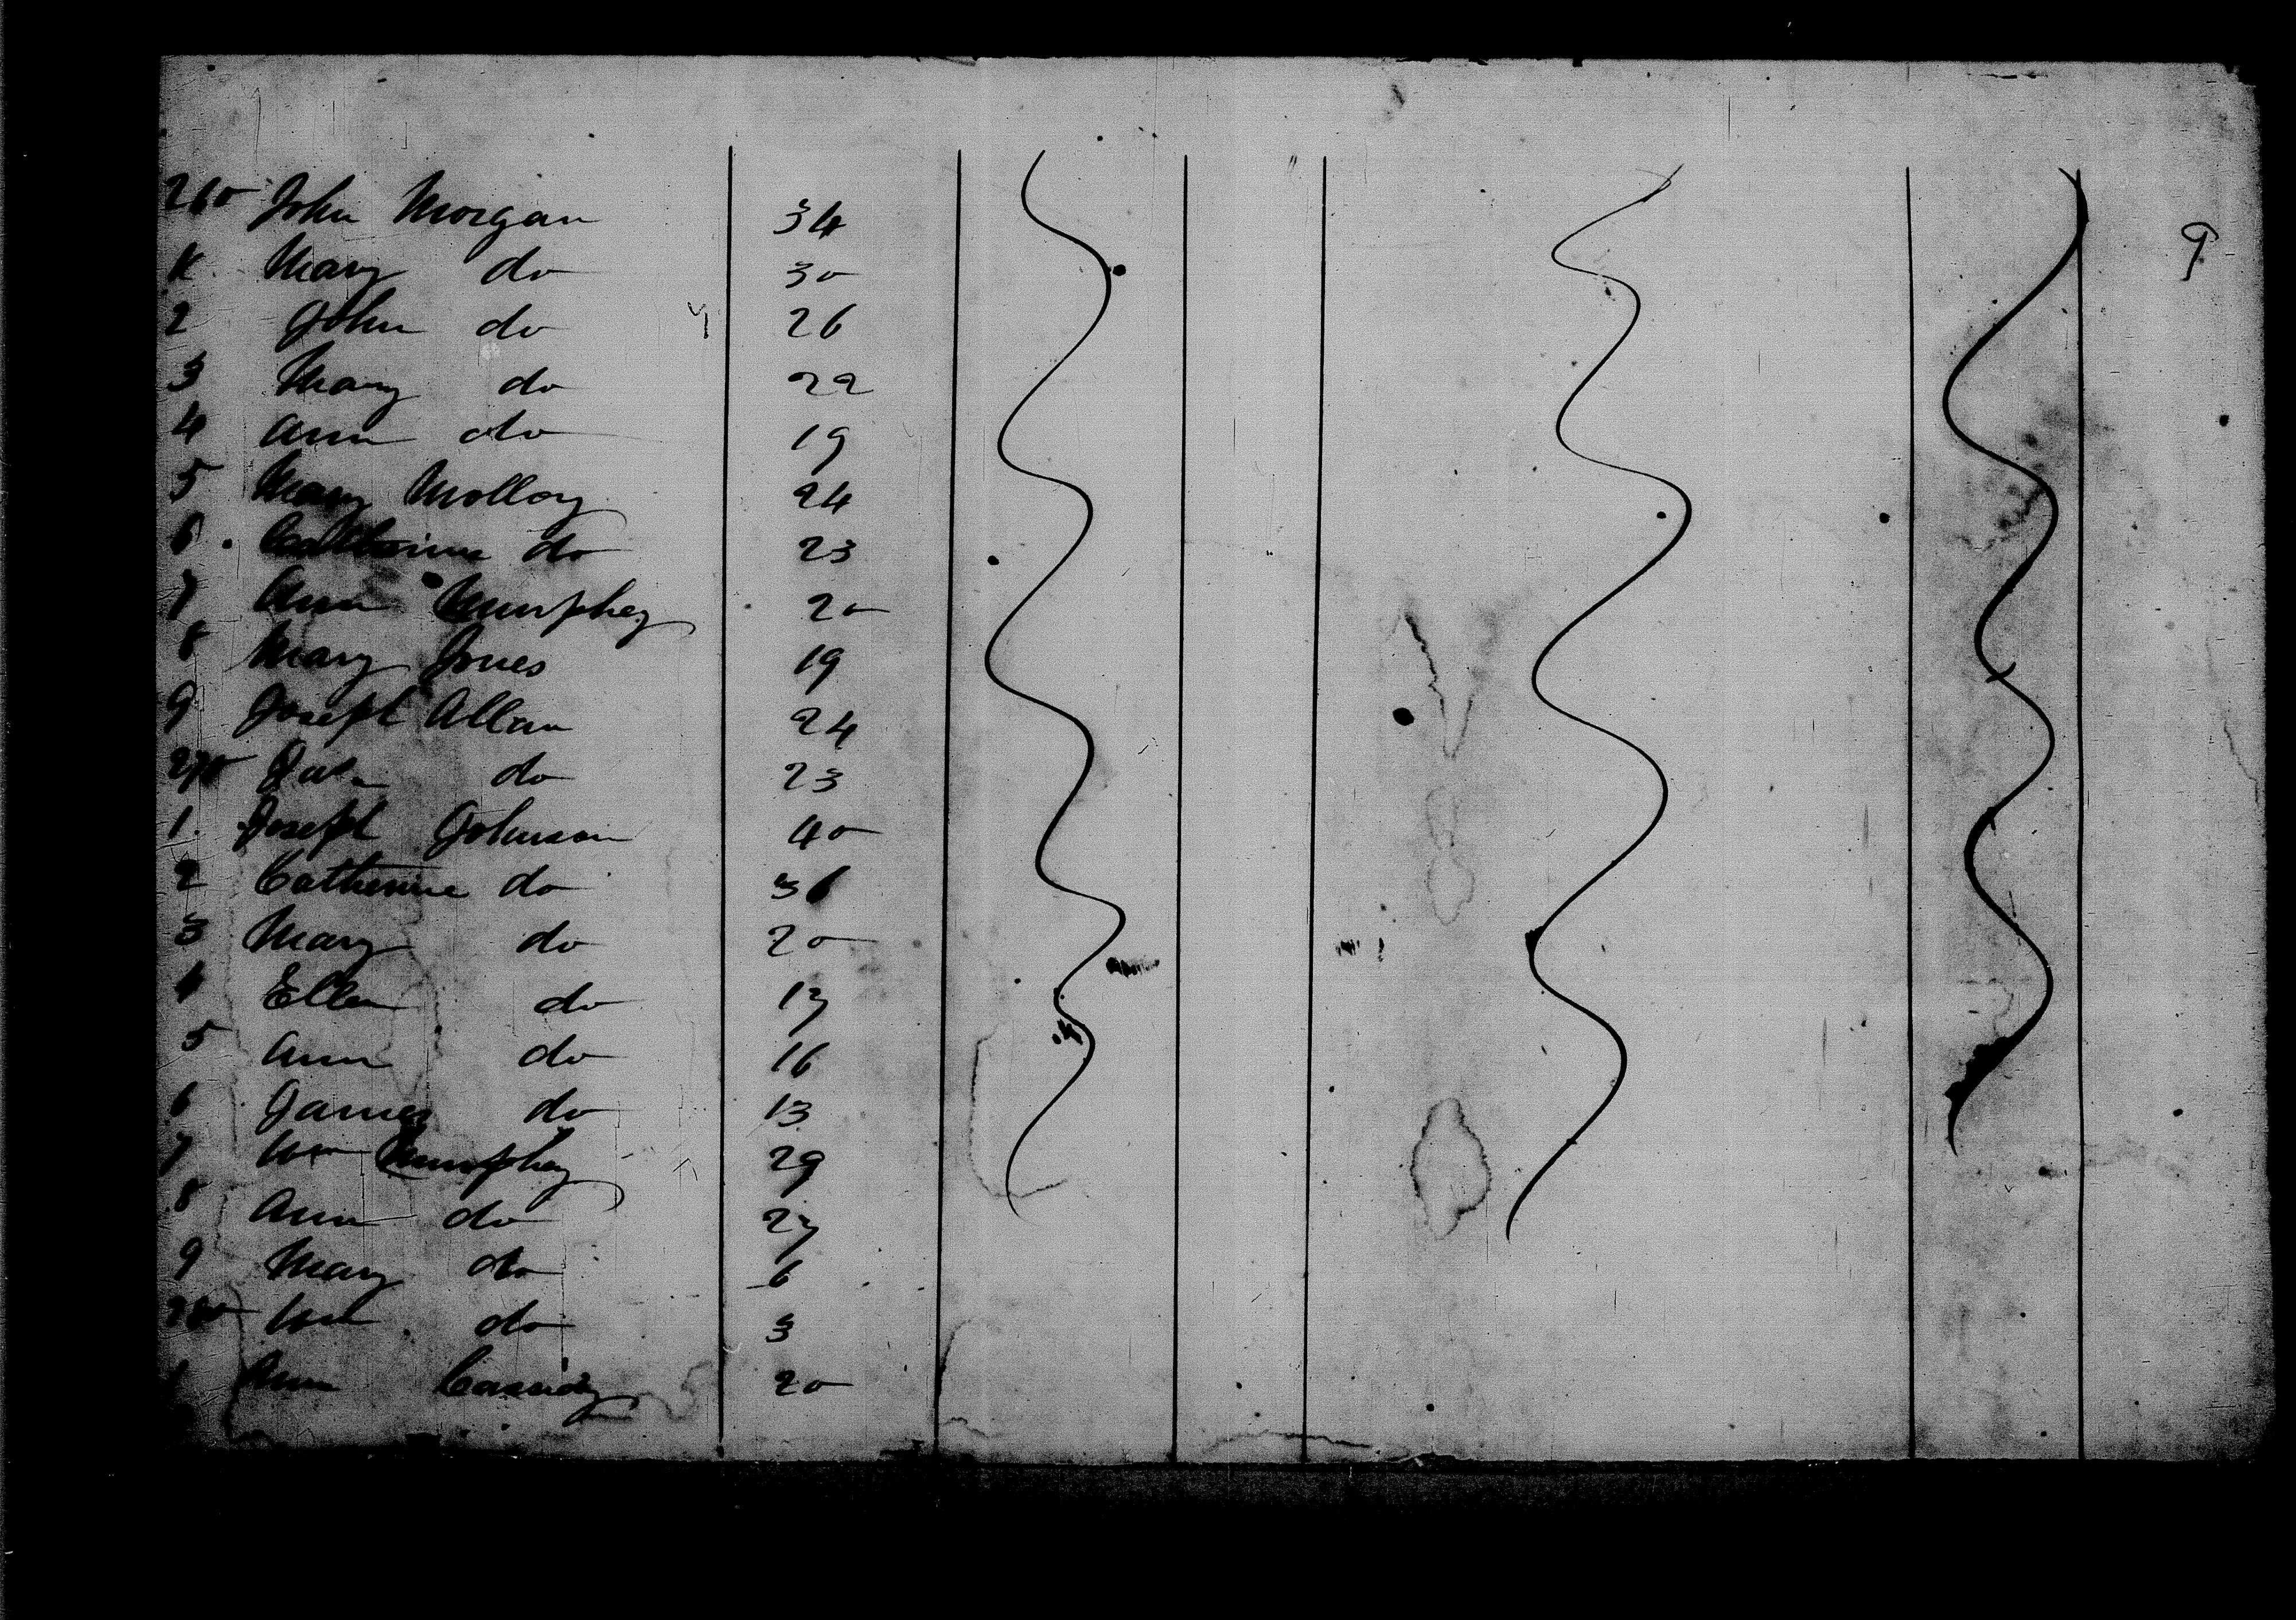 260 John Morgan 34
1 Mary do 30
2 John do 26
3 Mary do 22
4 Ann do 19
5 Mary Molloy 24
6 Catherine do 23
7 Ann Humphey 20
8 Mary Jones 19
9 Joseph Allan 24
270 do 23
1 Joseph Johnson 40
2 Catherine do 36
3 Mary do 20
4 Ellen do 17
5 Ann do 16
6 James do 13
7 Wm Humphey 29
8 Ann do 27
9 Mary do 6
280 Wm do 3
1 Ann Cassidy 20
9